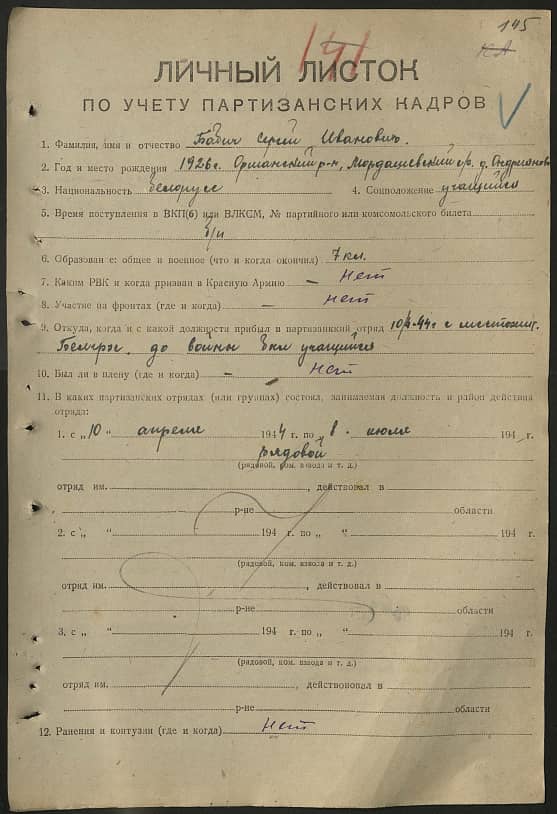 145
141
ЛИЧНЫЙ ЛИСТОК
ПО УЧЕТУ ПАРТИЗАНСКИХ КАДРОВ
1. Фамилия, имя и отчество Бабич Сергей Иванович.
2. Год и место рождения 1926 г. Оршанский р-н, Мордашевский с/с. д. Андрияново
3. Национальность белорусс 4. Соцположение учащийся
5. Время поступления в ВКП(б) или ВЛКСМ, № партийного или комсомольского билета
б/п
6. Образован е: общее и военное (что и когда окончил) 7 кл.
7. Каким РВК и когда призван в Красную Армию – Нет
8. Участие на фронтах (где и когда) – нет
9. Откуда, когда и с какой должности прибыл в партизанкий отряд 10/4-44 г с
до войны был учащийся
10. Был ли в плену (где и когда) – нет
11. В каких партизанских отрядах (или группах) состоял, занимаемая должность и район действия
отряда:
1. с „10 “ апреля 1944 г. по „ 8 . июля 194 г.
рядовой
(рядовой, ком. взвода и т. д.)
отряд им. , действовал в
р-не области
2. с „ “ 194 г. по „ “ 194 г.
(рядовой, ком. взвода и т. д.)
отряд им. , действовал в
р-не области
3. с „ “ 194 г. по „ “ 194 г.
(рядовой, ком. взвода и т. д.)
отряд им. , действовал в
р-не области
12. Ранения и контузии (где и когда) Нет